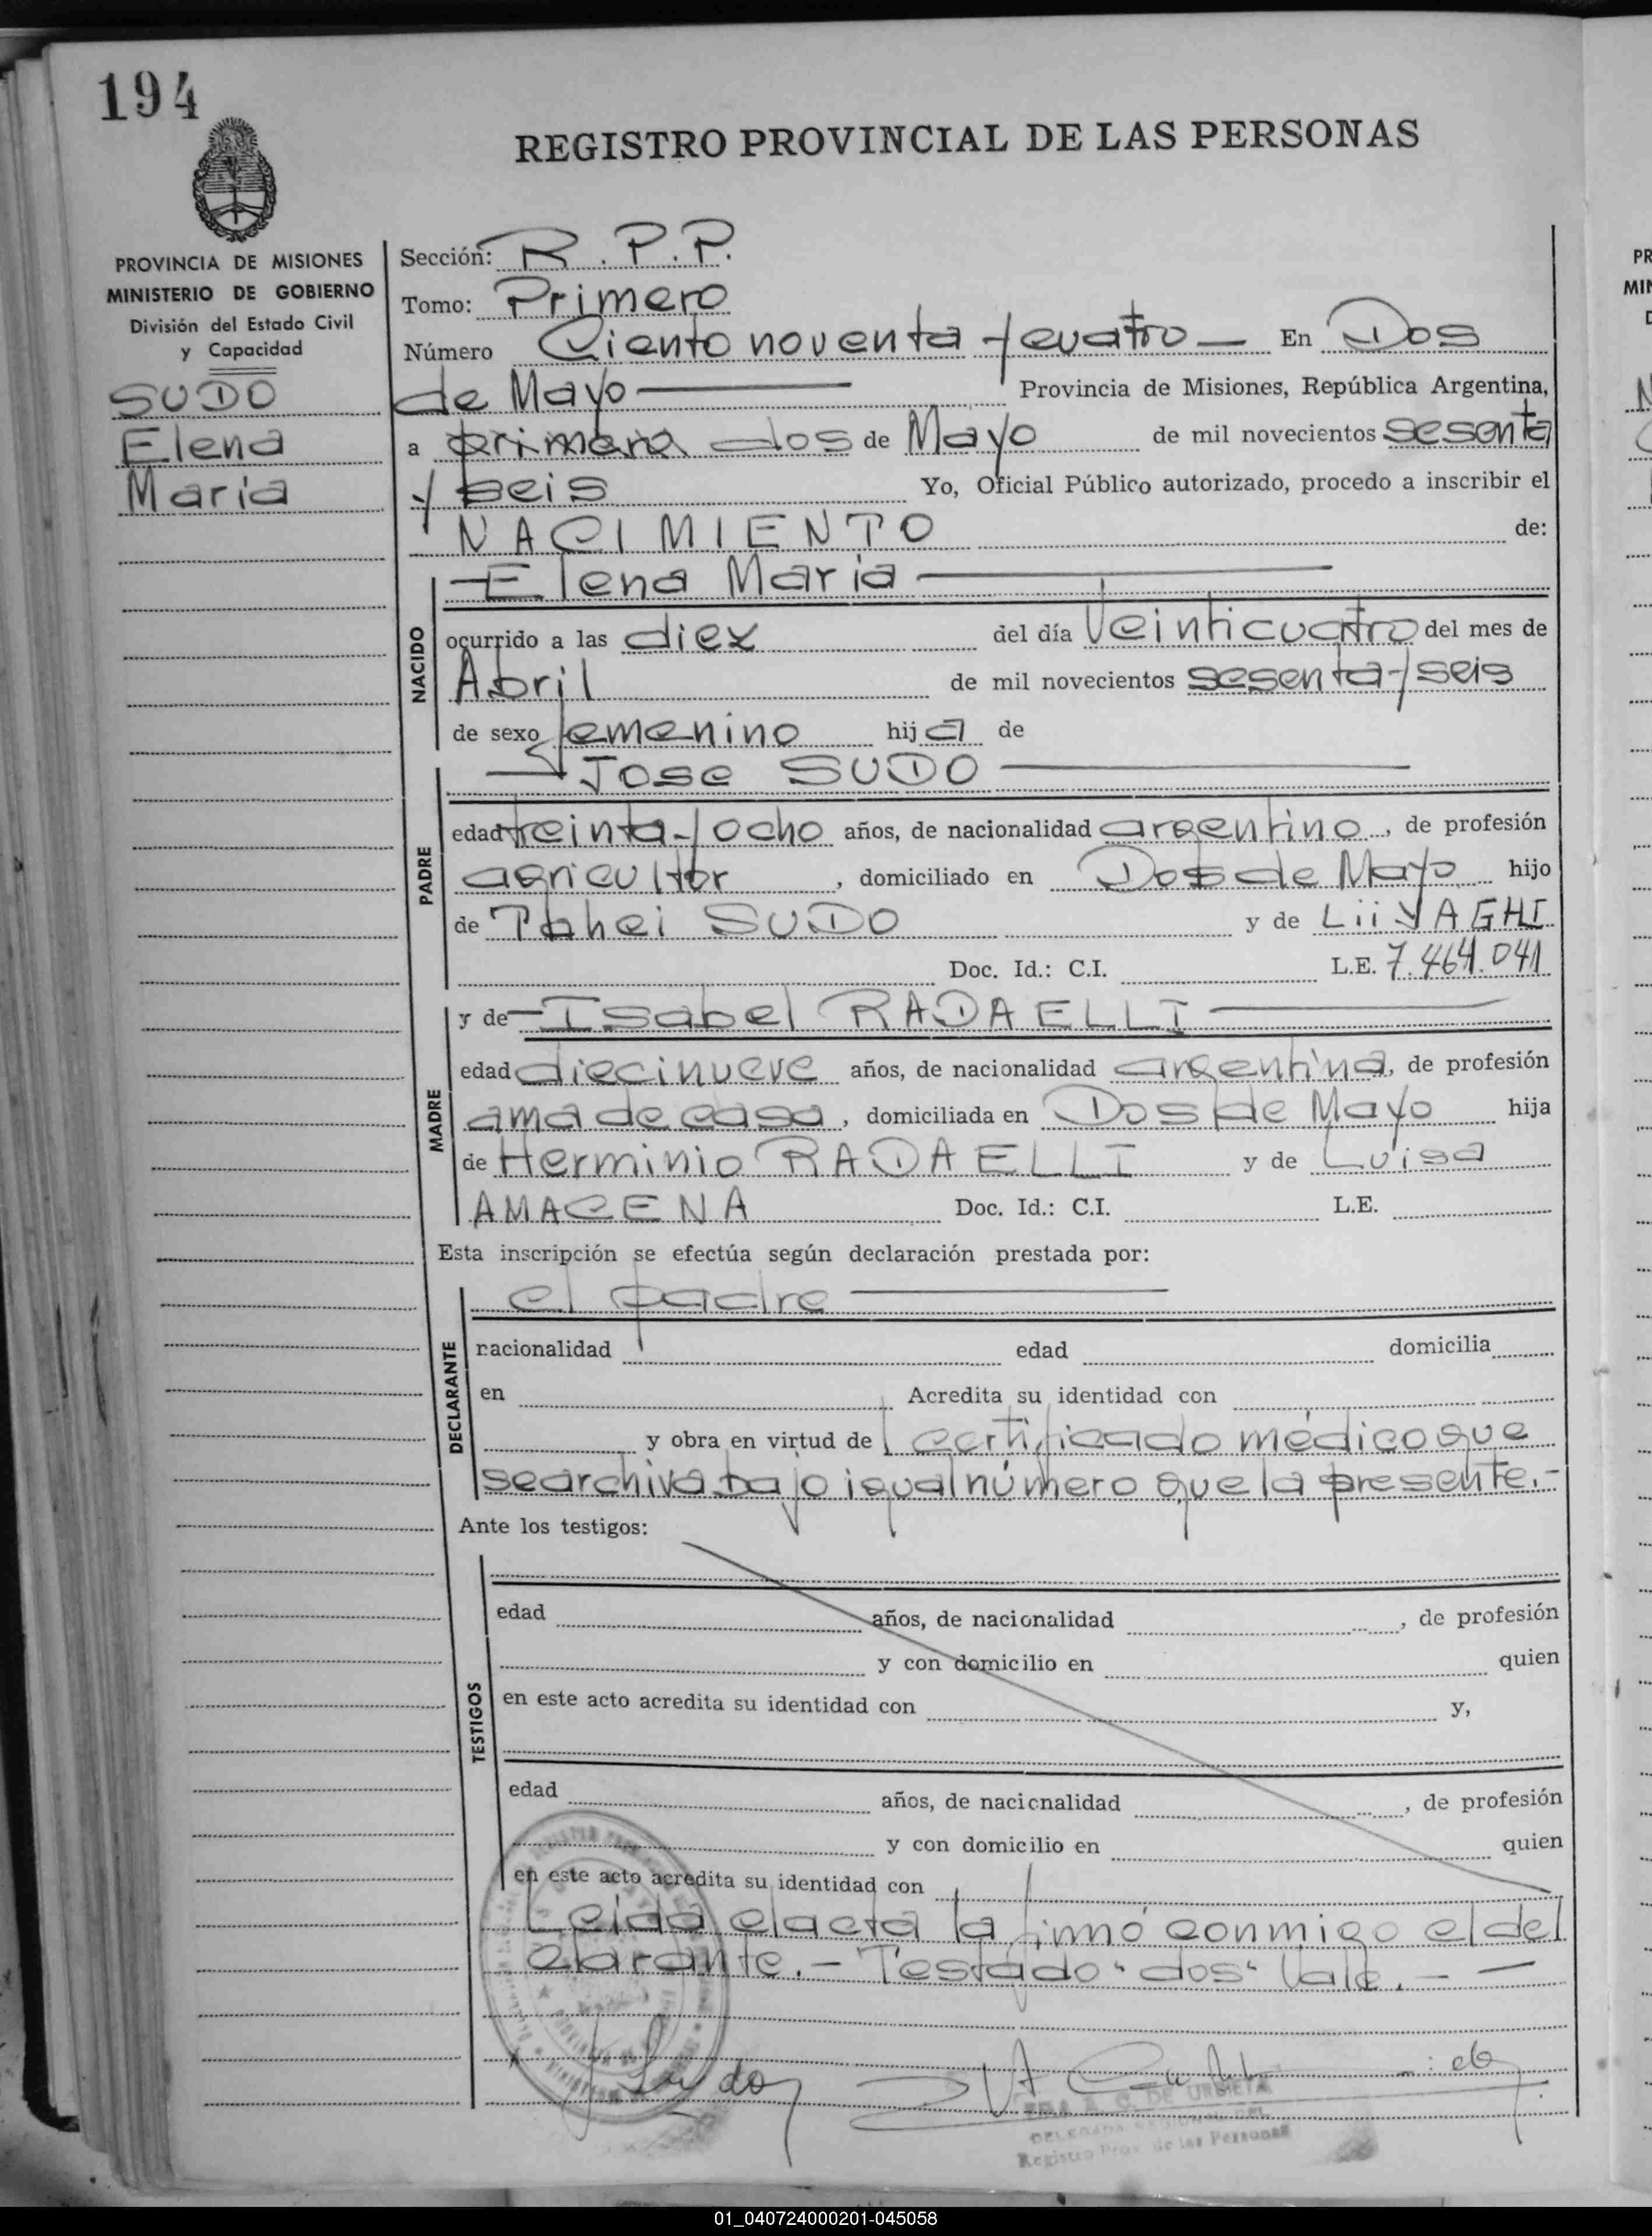 194
REGISTRO PROVINCIAL DE LAS PERSONAS
PROVINCIA DE MISIONES
MINISTERIO DE GOBIERNO
División del Estado Civil
y Capacidad
SUDO
Elena
Maria
Sección: R.P.P.
Tomo: Primero
Número Ciento noventa y cuatro — En Dos
de Mayo — Provincia de Misiones, República Argentina,
a primero dos de Mayo de mil novecientos sesenta
y seis Yo, Oficial Público autorizado, procedo a inscribir el
NACIMIENTO de:
NACIDO
— Elena Maria —
ocurrido a las diez del día Veinticuatro del mes de
Abril de mil novecientos sesenta y seis
de sexo femenino hija de
PADRE
— Jose SUDO —
edad treinta y ocho años, de nacionalidad argentino, de profesión
agricultor, domiciliado en Dos de Mayo hijo
de Tahei SUDO y de Lii YAGHI
Doc. Id.: C.I. L.E. 7.464.041
MADRE
y de — Isabel RADAELLI —
edad diecinueve años, de nacionalidad argentina, de profesión
ama de casa, domiciliada en Dos de Mayo hija
de Herminio RADAELLI y de Luisa
AMACENA Doc. Id.: C.I. L.E.
Esta inscripción se efectúa según declaración prestada por:
DECLARANTE
el padre —
nacionalidad edad domicilia
en Acredita su identidad con
y obra en virtud de certificado médico que
se archiva bajo igual número que la presente.-
Ante los testigos:
TESTIGOS
edad años, de nacionalidad , de profesión
y con domicilio en quien
en este acto acredita su identidad con y,
edad años, de nacionalidad , de profesión
y con domicilio en quien
en este acto acredita su identidad con
Leida el acta la firmó conmigo el del
clarante.- Testado "dos" Vale.- —
Sudo
C. DE URBIETA
DELEGADA
Registro Prov. de las Personas
01_040724000201-045058